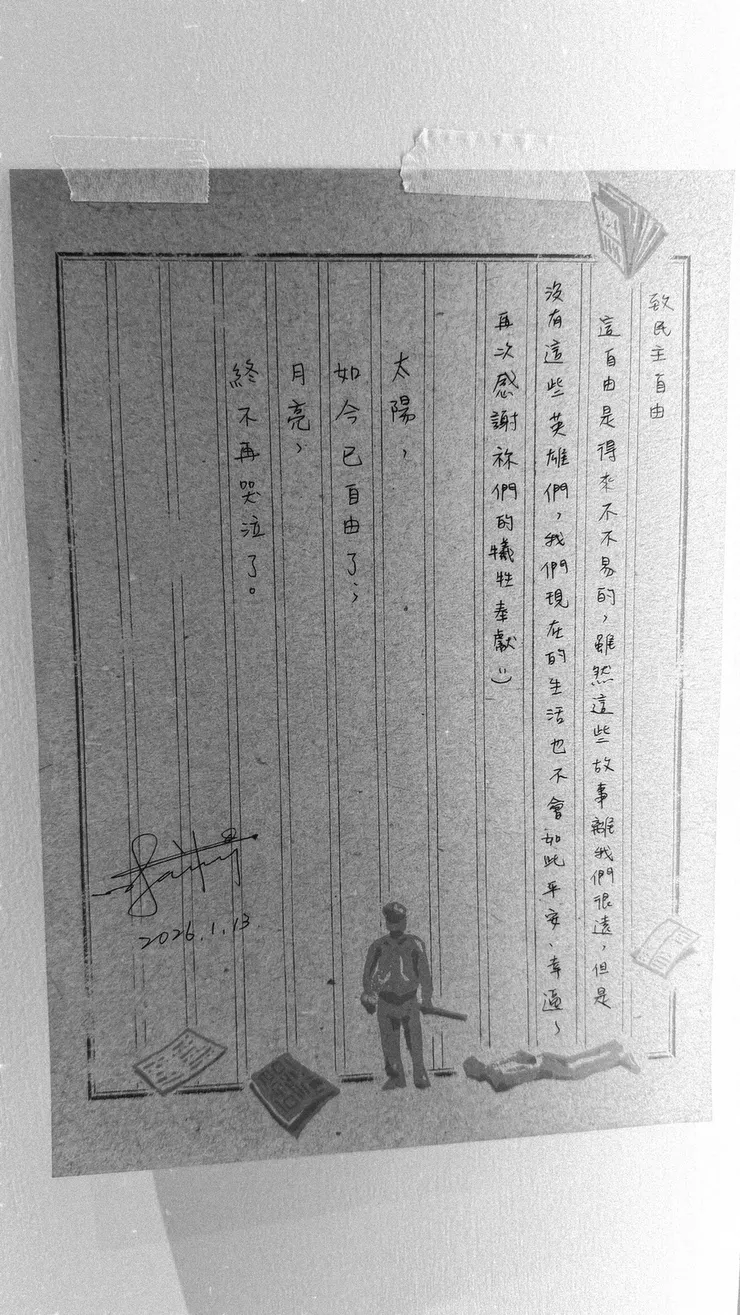 致民主自由
這自由是得來不不易的，雖然這些故事離我們很遠，但是
沒有這些英雄們，我們現在的生活也不會如此平安、幸福，
再次感謝祢們的犧牲奉獻:)
太陽，
如今已自由了；
月亮，
終不再哭泣了。
2026.1.13